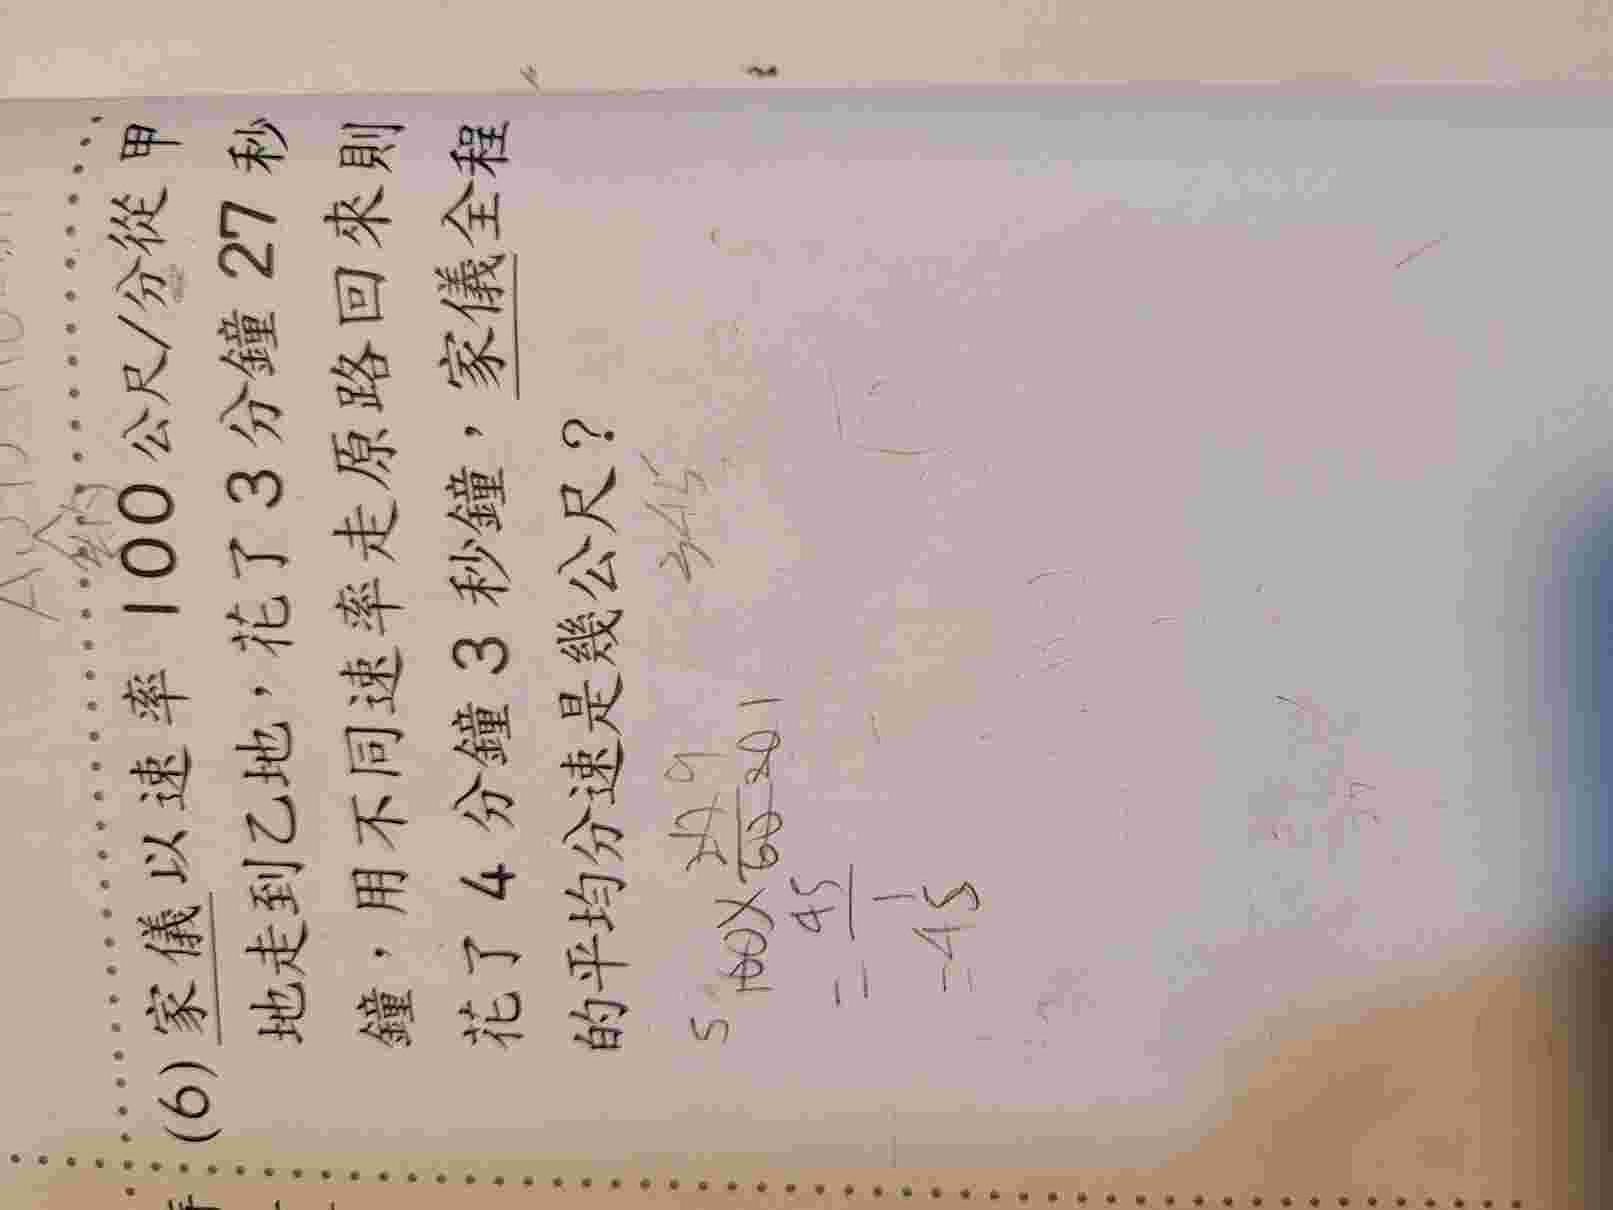 (6) 家儀以速率 100 公尺/分從甲
地走到乙地，花了 3 分鐘 27 秒
鐘，用不同速率走原路回來則
花了 4 分鐘 3 秒鐘，家儀全程
的平均分速是幾公尺？
345
5 100× 27 9
60 20 1
= 45
1
=45